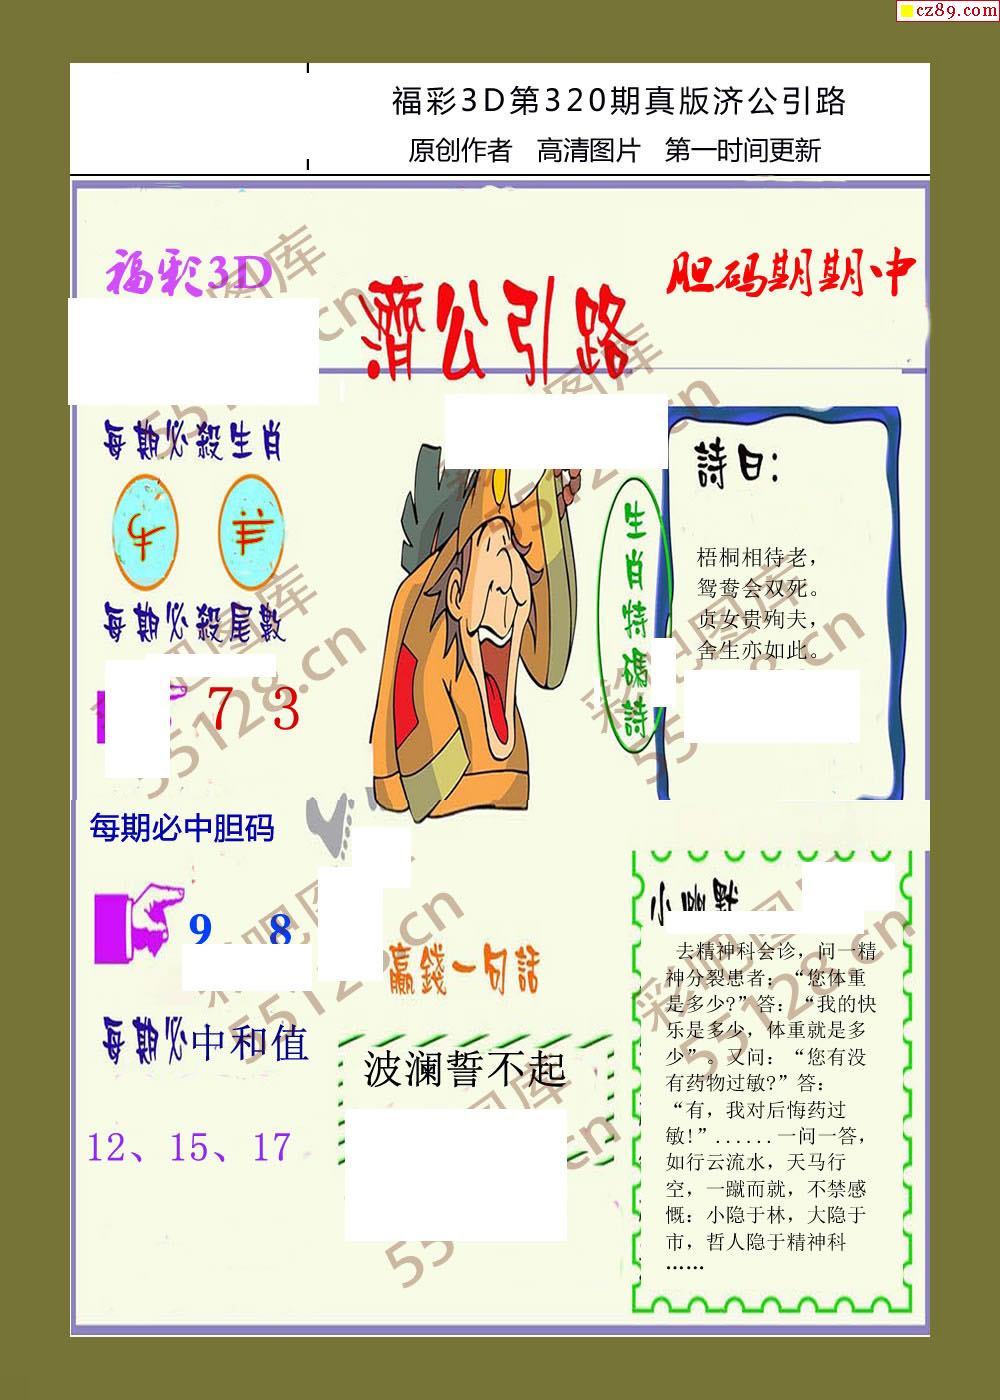 cz89.com
福彩3D第320期真版济公引路
原创作者 高清图片 第一时间更新
福彩3D
濟公引路
胆码期期中
每期必殺生肖
牛 羊
每期必殺尾數
7 3
每期必中胆码
9 8
每期必中和值
12、15、17
生肖特碼詩
詩曰：
梧桐相待老，
鸳鸯会双死。
贞女贵殉夫，
舍生亦如此。
赢錢一句話
波澜誓不起
小幽默
去精神科会诊，问一精
神分裂患者：“您体重
是多少?”答：“我的快
乐是多少，体重就是多
少”。又问：“您有没
有药物过敏?”答：
“有，我对后悔药过
敏!”......一问一答，
如行云流水，天马行
空，一蹴而就，不禁感
慨：小隐于林，大隐于
市，哲人隐于精神科
……
彩吧图库
55128.cn